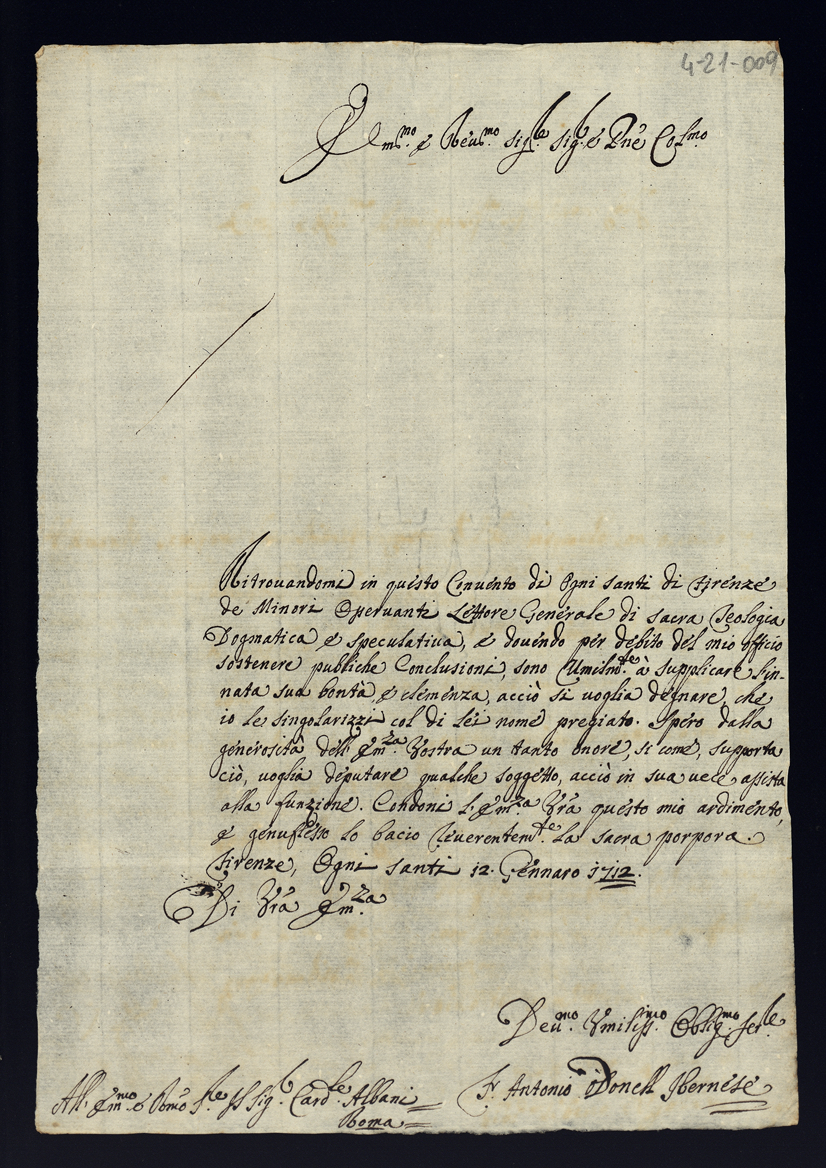 4-21-009
Em.mo e Reu.mo Sig.re Sig.re e Pne Col.mo
Ritrouandomi in questo Conuento di Ogni Santi di Firenze
de Minori Osseruanti Lettore Generale di sacra Teologia
Dogmatica e speculatiua, e douendo per debito del mio officio
sostenere publiche Conclusioni, sono Umilm.te à supplicare l'in-
nata sua bontà, e clemenza, acciò si voglia degnare, che
io le singolarizzi col di lei nome pregiato. Spero dalla
generosità dell' Em.za Vostra un tanto onore, si come, supporta
ciò, voglia deputare qualche soggetto, acciò in sua vece assista
alla funzione. Condoni l'Em.za Vrã questo mio ardimento,
e genuflesso lo bacio reuerentem.te la sacra porpora.
Firenze, Ogni Santi 12. Gennaro 1712.
Di Vrã Em.za
Deu.mo Vmiliss.mo Oblig.mo ser.re
All' Em.mo e Rmo Sig. Card.le Albani
Roma
Fr Antonio oDonell Ibernese